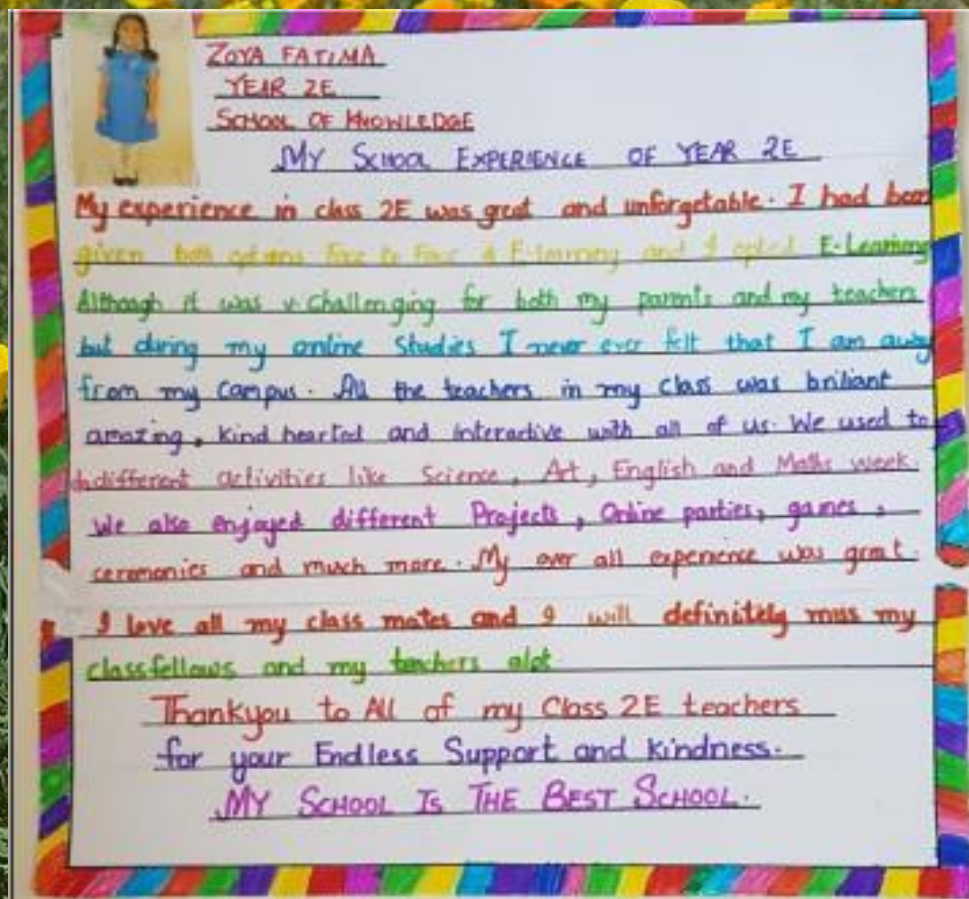 ZOYA FATIMA
YEAR 2E
SCHOOL OF KNOWLEDGE
MY SCHOOL EXPERIENCE OF YEAR 2E
My experience in class 2E was great and unforgetable. I had been
given both options Face to Face & E-learning and I opted E-Learning
Although it was v. Challenging for both my parents and my teachers
but during my online Studies I never ever felt that I am away
from my Campus. All the teachers in my class was briliant
amazing, kind hearted and interactive with all of us. We used to
do different activities like Science, Art, English and Maths week.
We also enjoyed different Projects, Online parties, games,
ceremonies and much more. My over all experience was great.
I love all my class mates and I will definitely miss my
classfellows and my teachers alot.
Thankyou to All of my Class 2E teachers
for your Endless Support and kindness.
MY SCHOOL IS THE BEST SCHOOL.